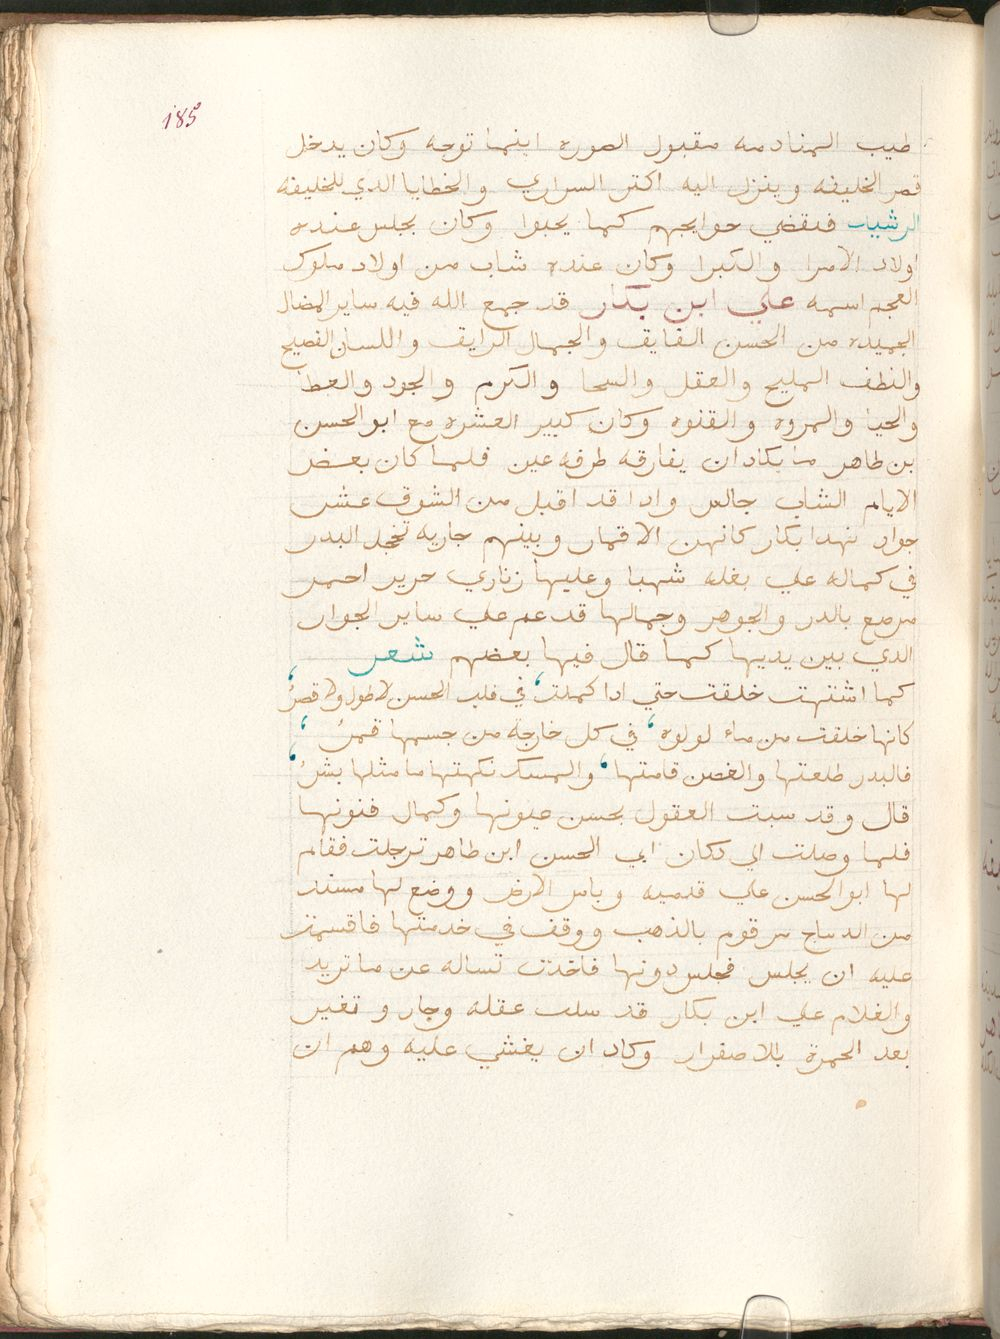 185
طيب المنادمه مقبول الصوره اينما توجه وكان يدخل
قصر الخليفه وينزل اليه اكتر السراري والخطايا الدي للخليفه
الرشيد فىقضي حوايجهم كما يحبوا وكان يجلس عنده
اولاد الامرا والكبرا وكان عنده شاب من اولاد ملوك
العجم اسمه علي ابن بكار قد جمع الله فيه ساير الخصال
الجميده من الحسن الفايق والجمال الرايق واللسان الفصيح
والنطف المليح والعقل والسخا والكرم والجود والعطا
والحيا والمروه والفتوه وكان كبير العشره مع ابو الحسن
بن طاهر ما يكاد ان يفارقه طرفه عين فلما كان بعض
الايام الشاب جالس وادا قد اقبل من الشوق عشر
جوار نهدا بكار كانهن الاقمار وبينهم جاريه تخجل البدر
في كماله علي بغله شهبا وعليها زناري حرير احمر
مرصع بالدر والجوهر وجمالها قد عم علي ساير الجوار
الدي بين يديها كما قال فيها بعضهم شعر
كما اشتهت خلقت حتي ادا كملت، في قلب الحسن لا طول ولا قصرُ،
كانها خلقت من ماء لولوه، في كل خارجة من جسمها قمرُ،
فالبدر طلعتها والغصن قامتها، والمسك نكهتها ما مثلها بشرُ،
قال وقد سبت العقول بحسن عيونها وكمال فنونها
فلما وصلت الي دكان ابي الحسن ابن طاهر ترجلت فقام
لها ابو الحسن علي قدميه وباس الارض ووضع لها مسند
من الديباج مرقوم بالذهب ووقف في خدمتها فاقسمت
عليه ان يجلس فجلس دونها فاخذت تساله عن ما تريد
والغلام علي ابن بكار قد سلب عقله وحار وتغير
بعد الحمرة بالاصفرار وكاد ان يغشي عليه وهم ان